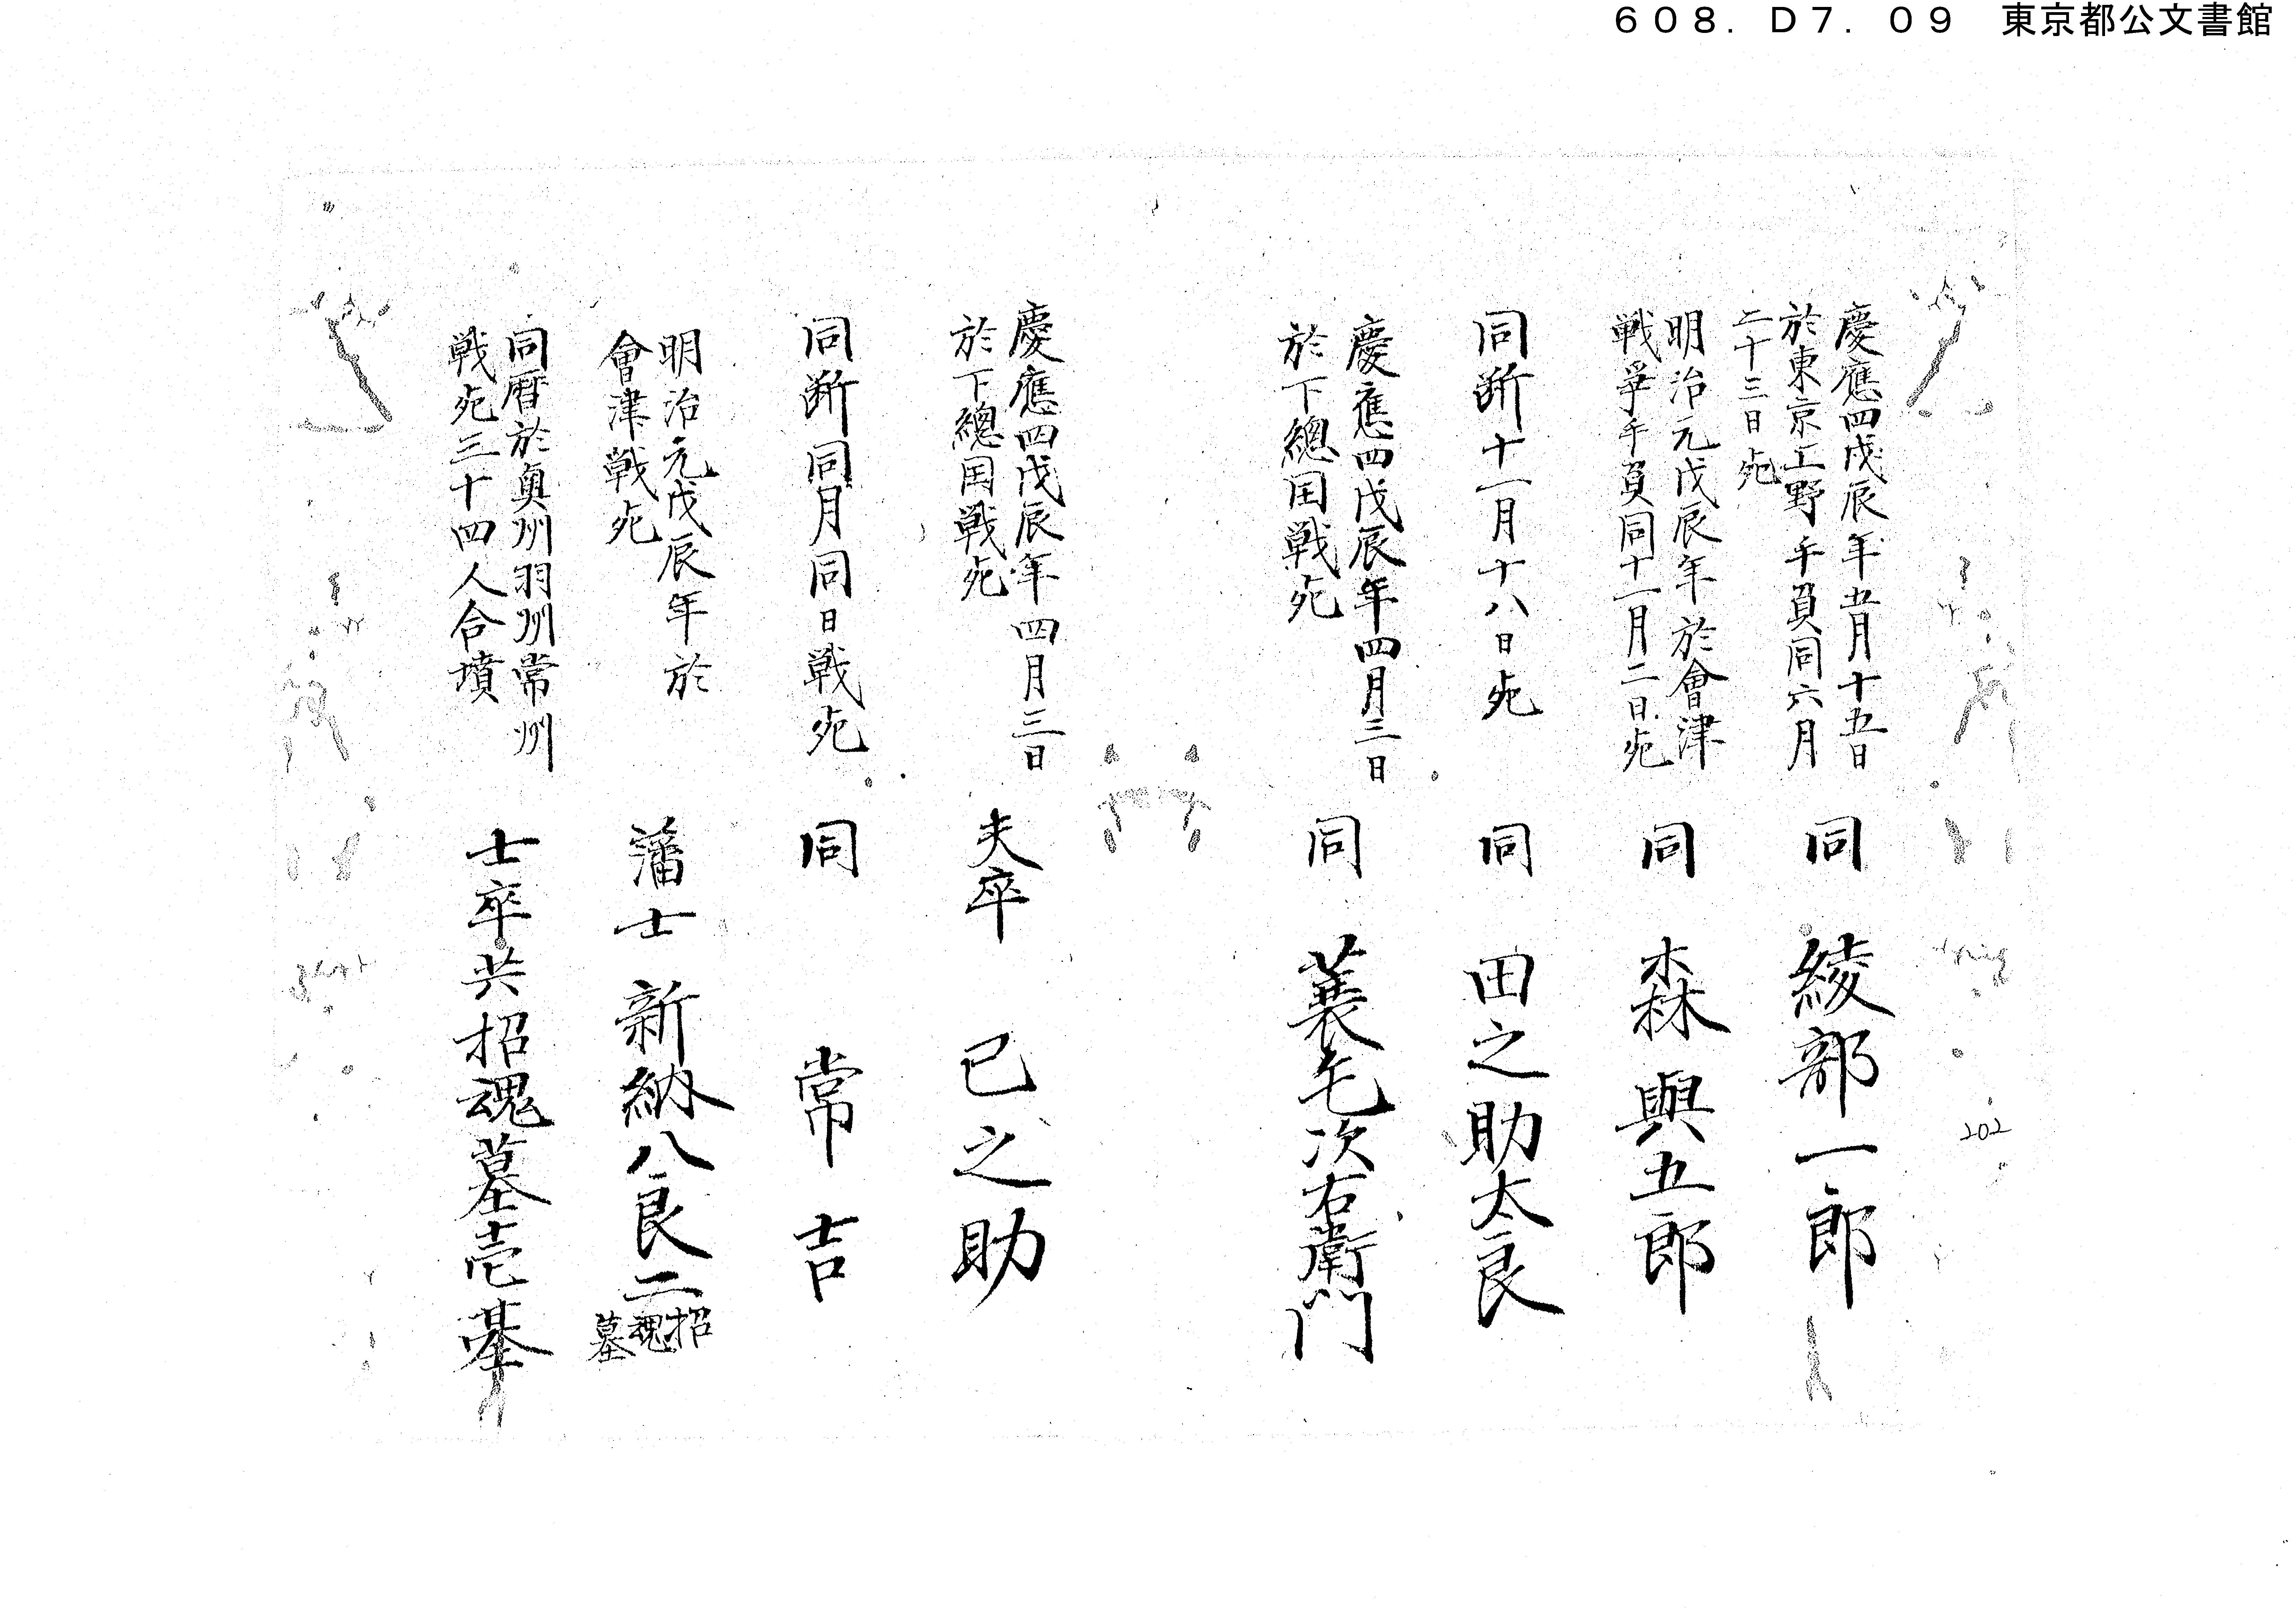 ６０８．Ｄ７．０９　東京都公文書館
慶應四戊辰年五月十五日
於東京上野手負同六月
二十三日死
同　綾部一郎
明治元戊辰年於會津
戦爭手負同十一月二日死
同　森與五郎
同断十一月十八日死
同　田之助太良
慶應四戊辰年四月三日
於下總国戦死
同　蓑毛次右衛門
慶應四戊辰年四月三日
於下總国戦死
夫卒　已之助
同断同月同日戦死
同　常吉
明治元戊辰年於
會津戦死
藩士　新納八良二
招魂墓
同暦於奥州羽州常州
戦死三十四人合墳
士卒共招魂墓壱基
202